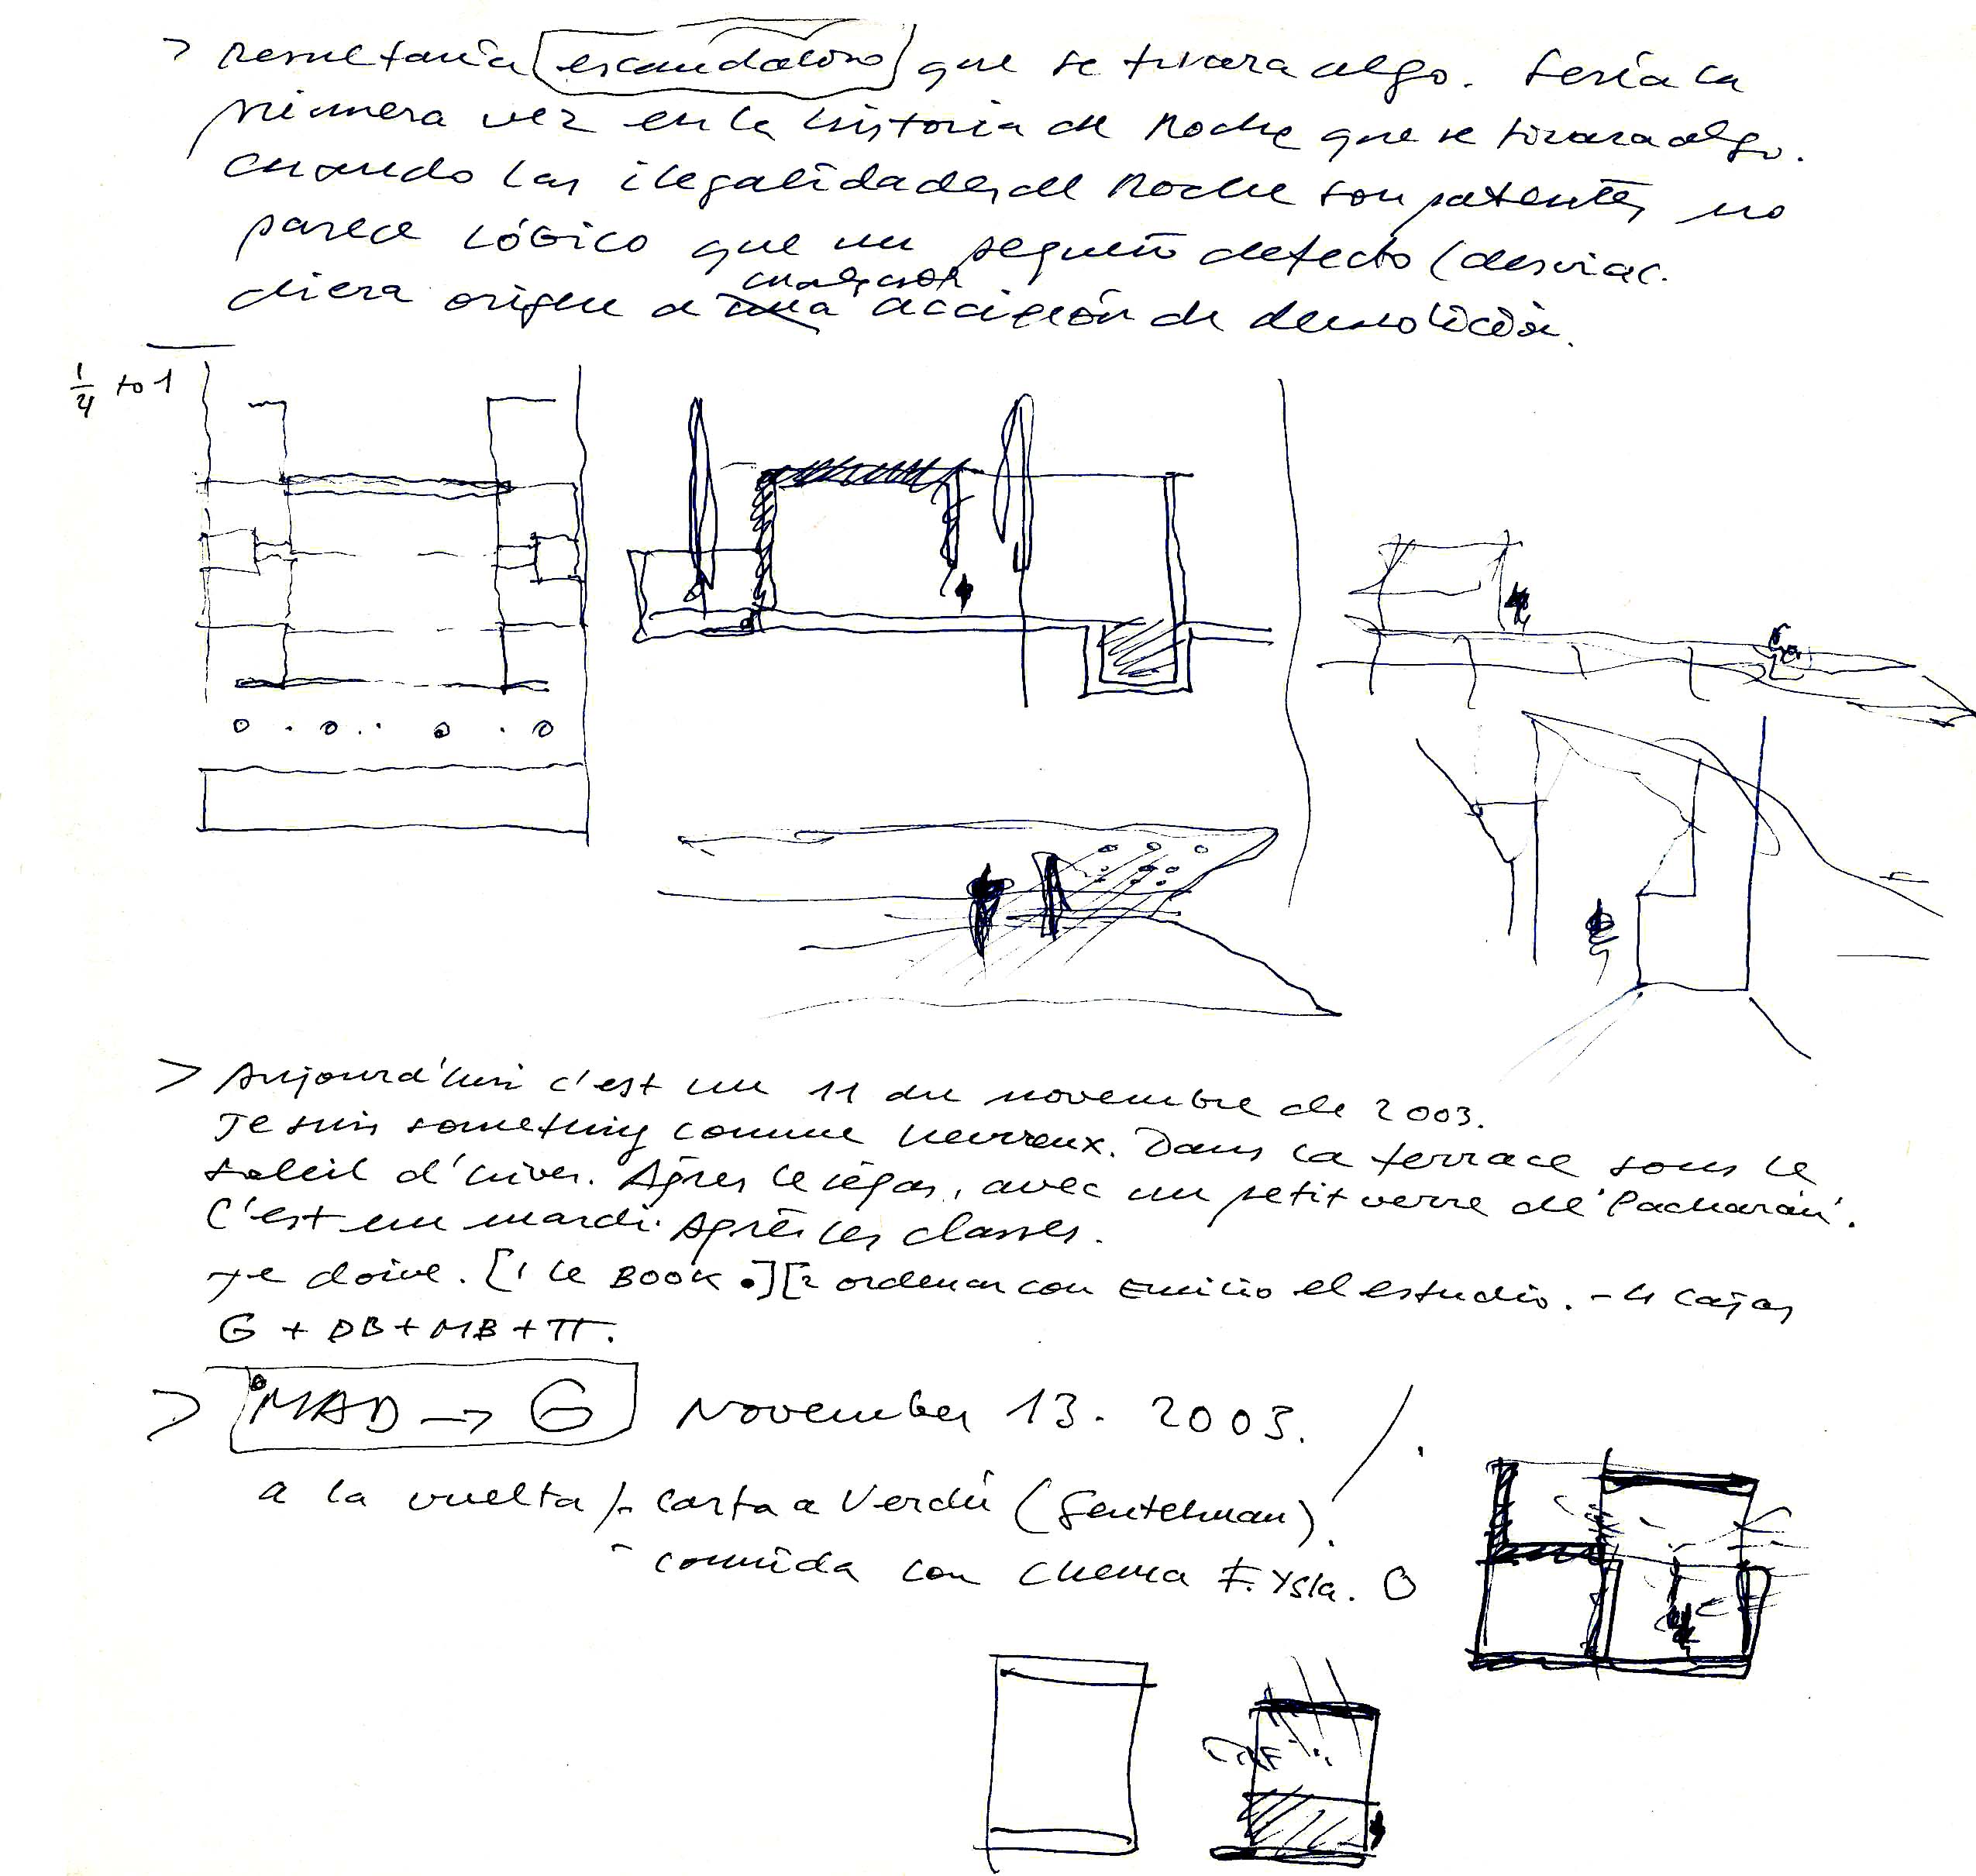 > Resultaría escandaloso que se tirara algo. Sería la
primera vez en la historia de Roche que se tirara algo.
cuando las ilegalidades de Roche son patentes, no
parece LÓGICO que un pequeño defecto (desviac.
cualquier
diera origen a una acción de demolición.
1/4 to 1
> Aujourd'hui c'est un 11 du novembre de 2003.
Je suis something comme heureux. Dans la terrace sous le
soleil d'hiver. Après le répas, avec un petit verre de 'Pacharán'.
C'est un mardi. Après les classes.
Je doive. [1 le BOOK •] [2 ordenar con Emilio el estudio. - 4 cajas
G + DB + MB + π.
> MAD → G November 13. 2003.
a la vuelta /- carta a Verdú (Gentelman).
- comida con Chema F. Ysla. O